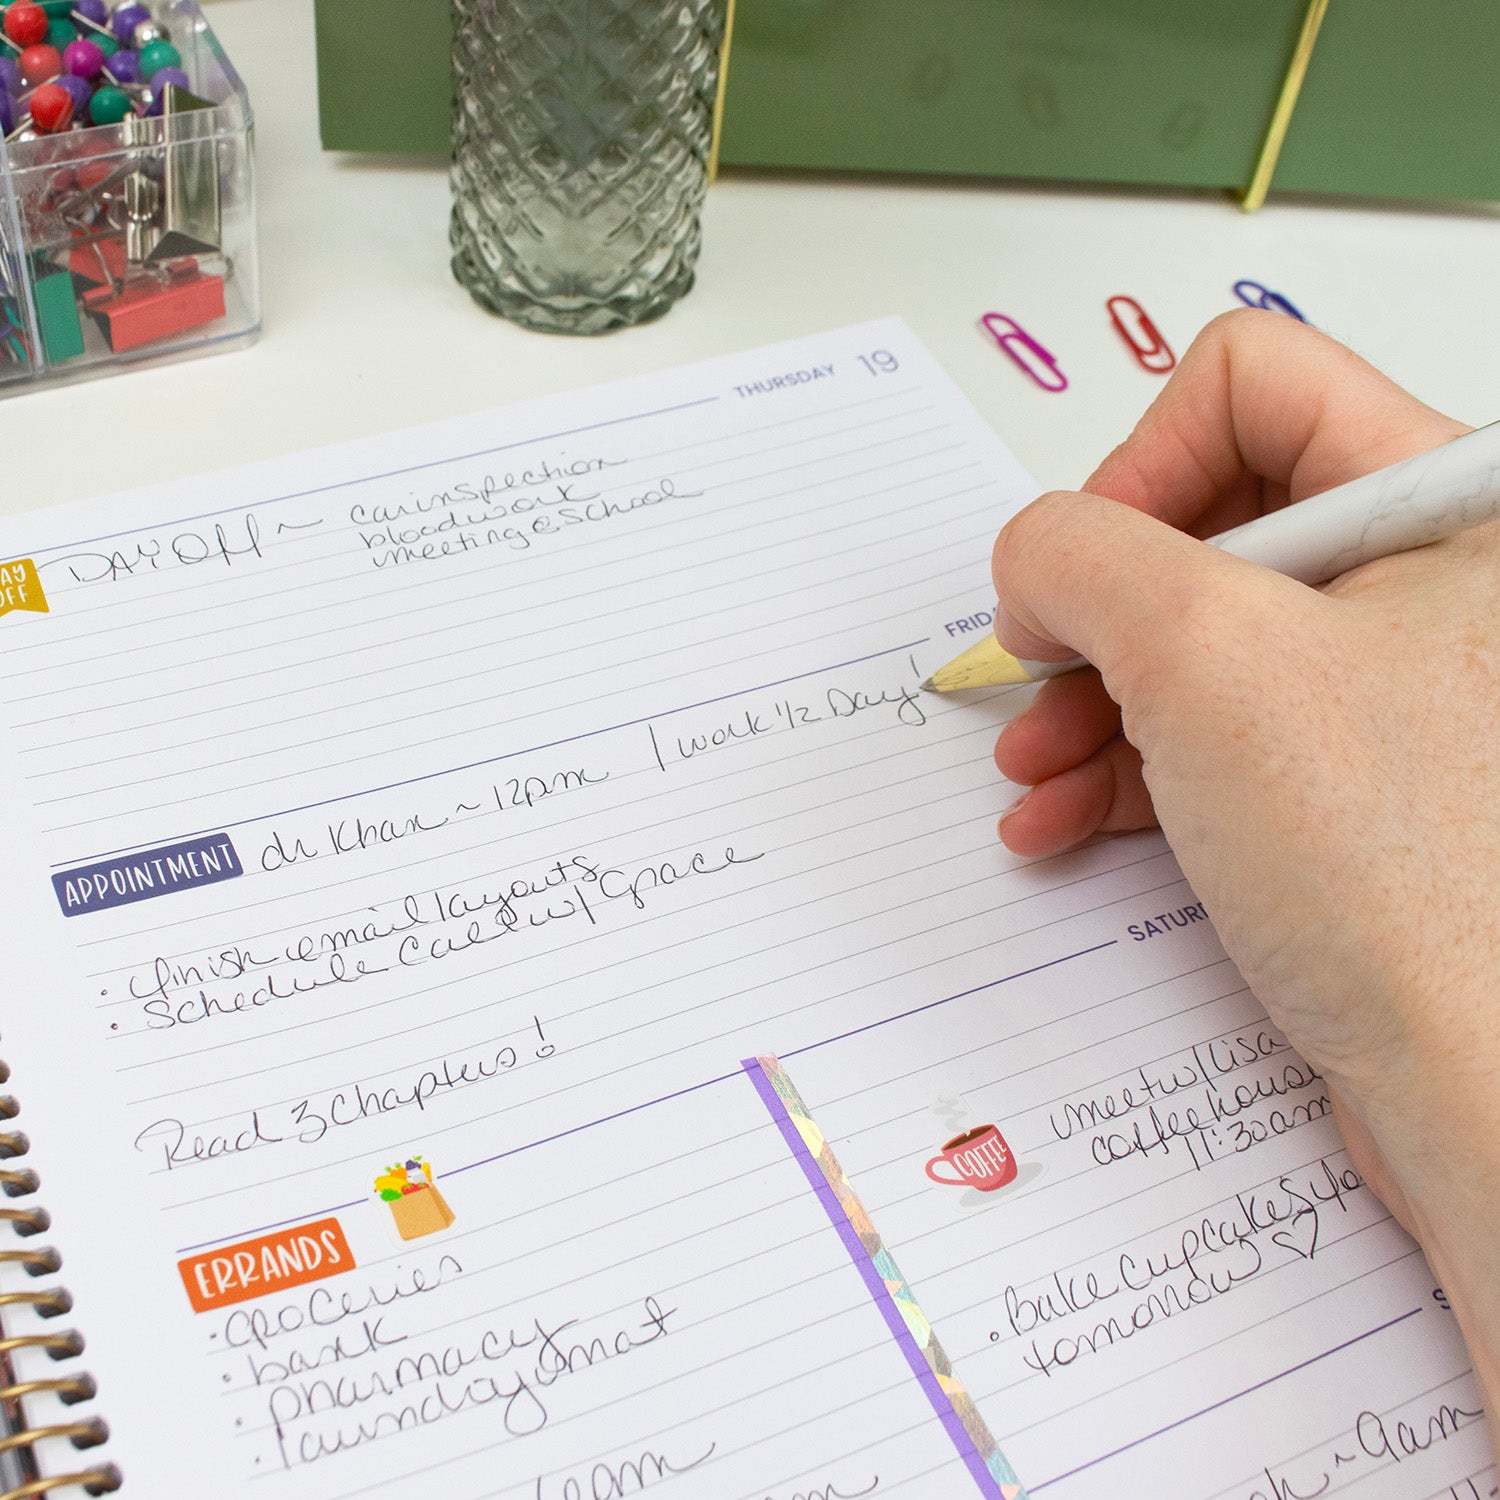 THURSDAY 19
DAY OFF
DAY Off ~ car inspection
bloodwork
meeting @ School
FRID
APPOINTMENT
dr Khan ~ 12pm / work 1/2 Day!
• finish email layouts
• Schedule Call w/ Grace
Read 3 Chapters!
SATUR
ERRANDS
• groceries
• bank
• pharmacy
• laundry omat
COFFEE
meet w/ Lisa
coffeehouse
11:30am
• Bake Cupcakes
tomorrow ♡
S
~ 9am